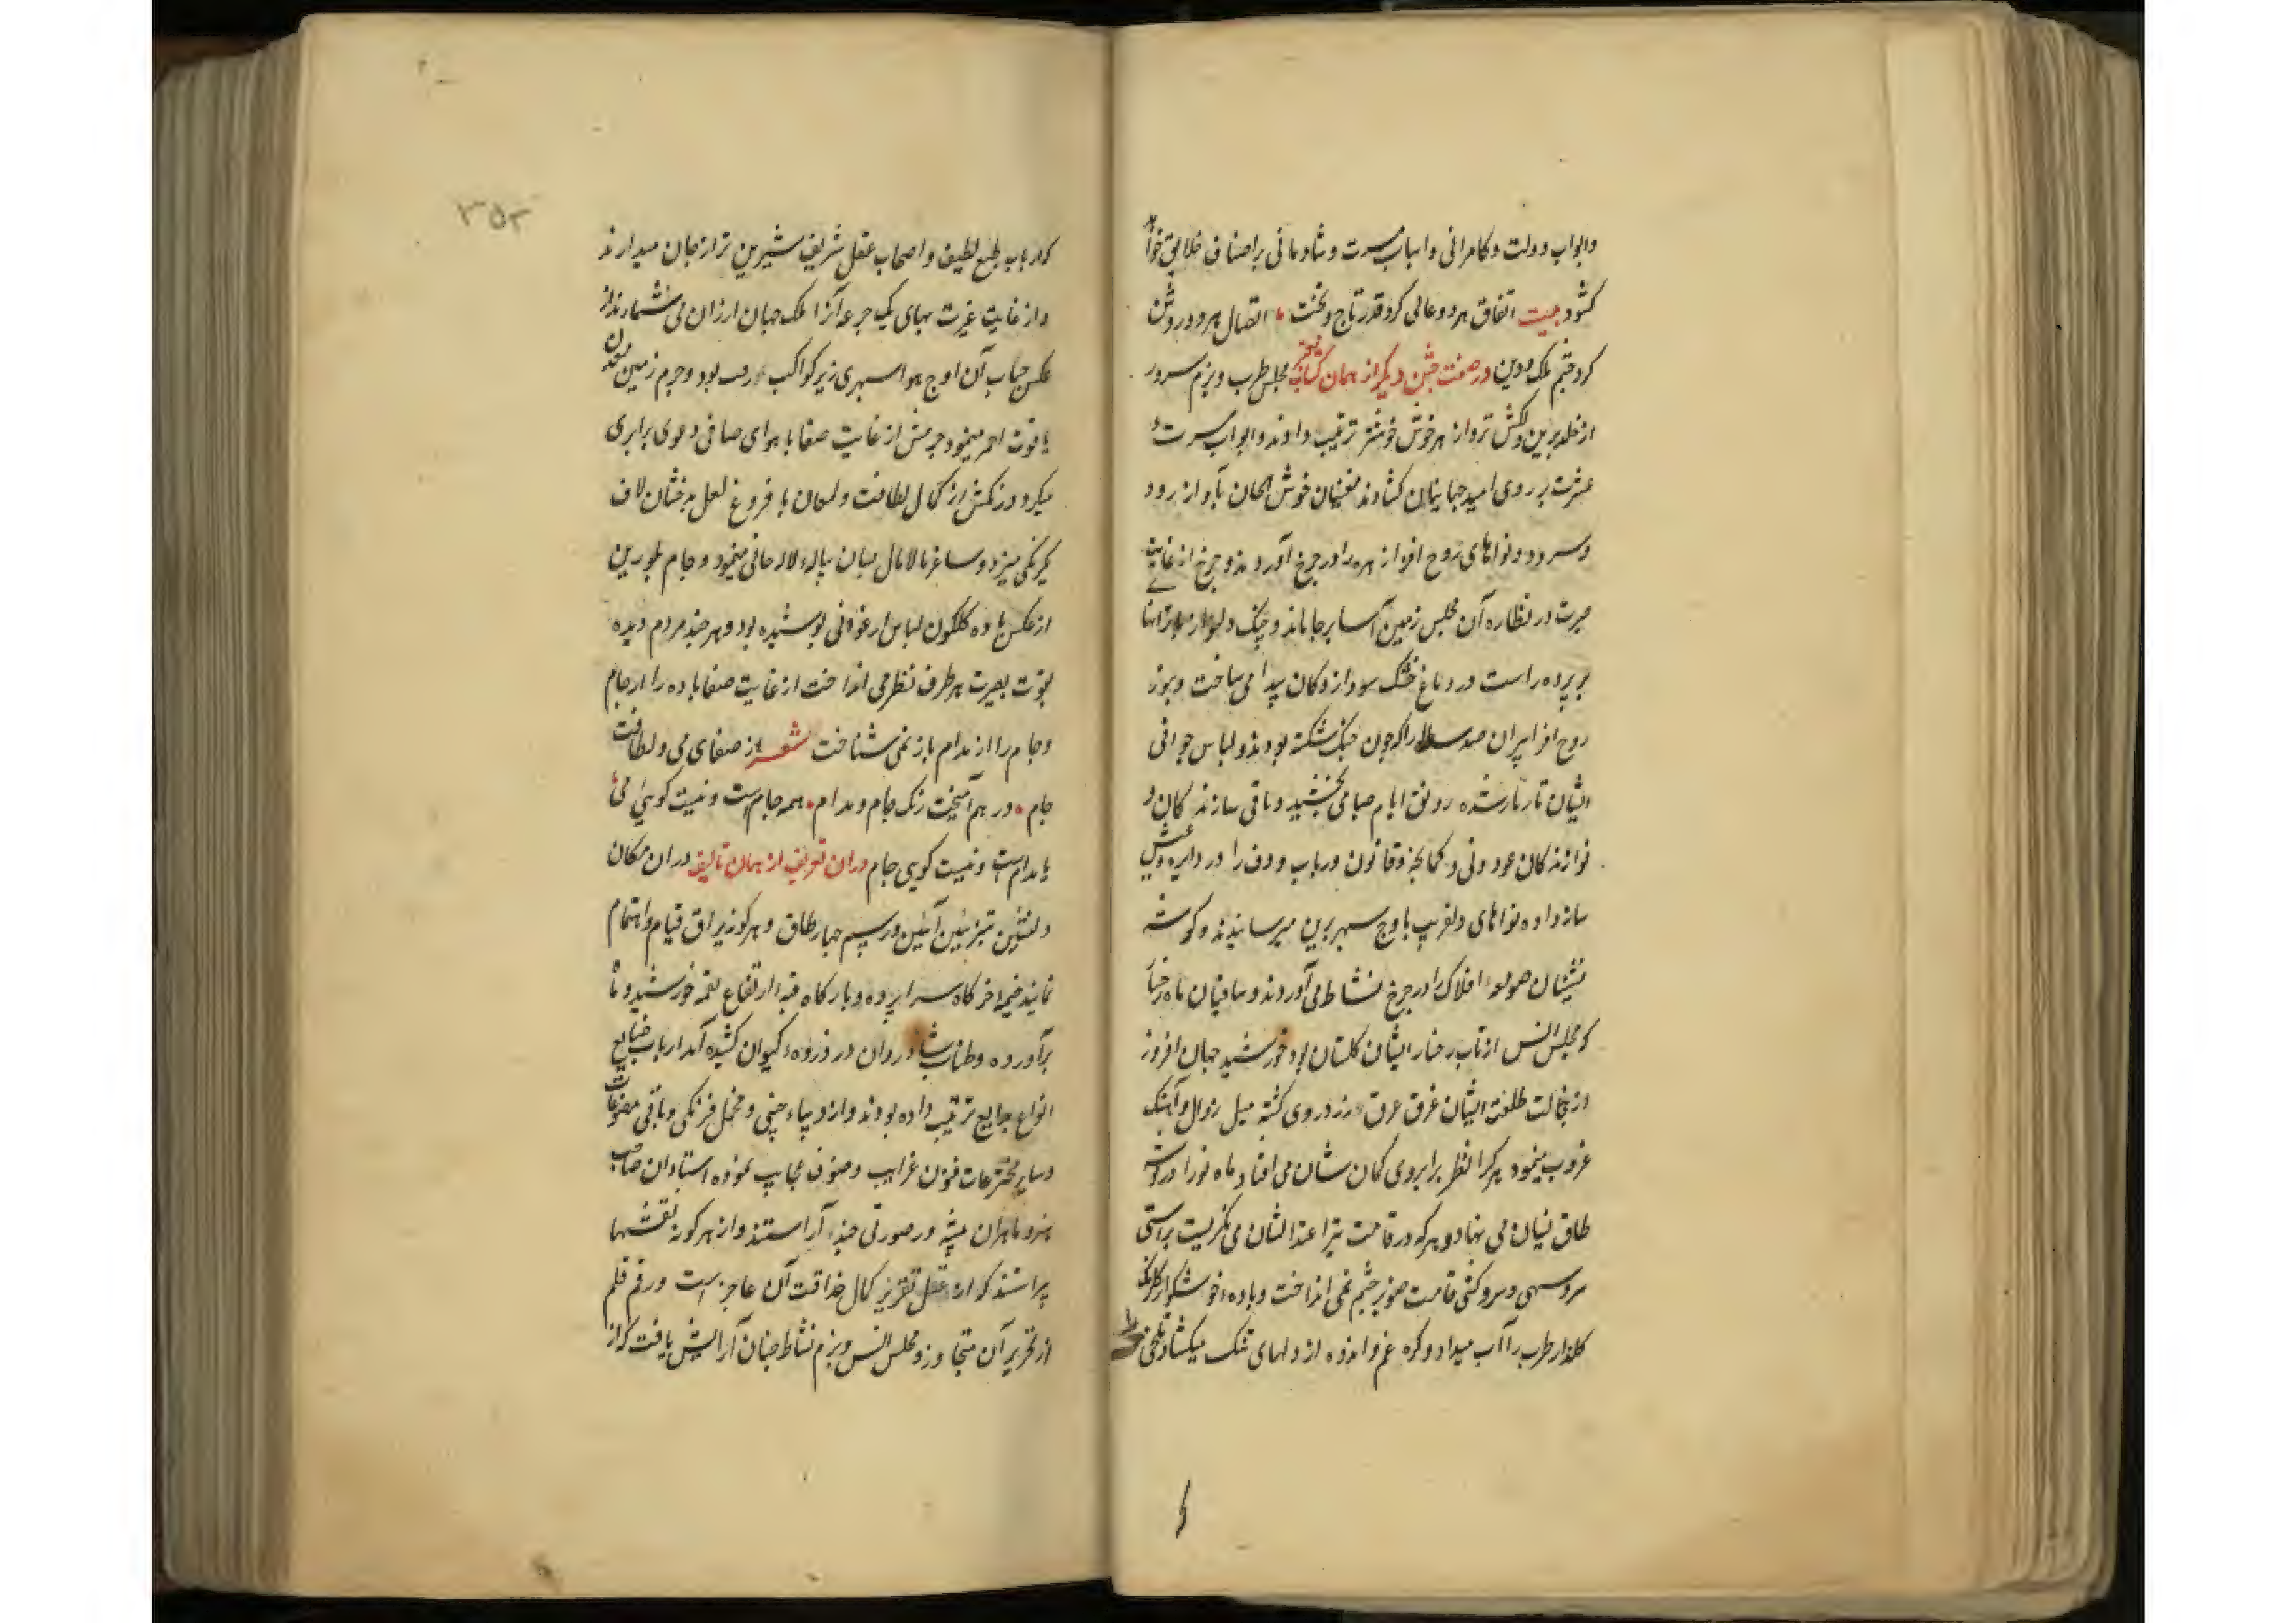 وابواب دولت و کامرانی واسباب مسرت و شادمانی بر اصناف خلایق خواهد
کشود بیت اتفاق هر دو عالی کرد قدر تاج و تخت اتصال هر دو روشن
کرد چشم ملک و دین در صفت جشن دیگر از همان کتاب مجلس طرب و بزم سرور
از خلد برین دلکش تر و از هر خوش خوشتر ترتیب دادند و ابواب مسرت و
عشرت بر روی امید جهانیان کشادند مغنیان خوش الحان بآواز رود
و سرود و نواهای روح افزا زهره را در چرخ آوردند و چرخ از غایت
حیرت در نظاره آن مجلس زمین آسا بر جا ماند و چنک
بر پرده راست در دماغ خشک سودازدکان پیدا می ساخت و
روح افزا پیران صد ساله را که چون چنک شکسته بودند و لباس جوانی
ایشان تار تار شده رونق ایام صبا می بخشید و باقی سازندکان و
نوازندکان عود و نی و کمانچه و قانون و رباب و دف را در دایره عیش
ساز داده نواهای دلفریب باوج سپهر برین میرسانیدند و کوشه
نشینان صومعه افلاک را در چرخ نشاط می آوردند و ساقیان ماه رخسا
که مجلس انس از تاب رخسار ایشان کلستان بود خورشید جهان افروز
از خجالت طلعت ایشان غرق عرق و زرد روی کشته میل زوال و آهنک
غروب مینمود هر کرا نظر بر ابروی کمان شان می افتاد ماه نو را در کوشه
طاق نسیان می نهاد و هر که در قامت تیرا عتدالشان می نکریست براستی
سرو سهی و سرو کشی قامت صنوبر چشم نمی انداخت و باده خوشکوار کلرنک
کلزار طرب را آب میداد و کره غم و اندوه از دلهای تنک میکشاد و تلخی
۳۵۲
که ارباب طبع لطیف و اصحاب عقل شریف شیرین تر از جان میدارند
و از غایت غیرت بهای یک جرعه آنرا ملک جهان ارزان می شمارند از
عکس حباب آن اوج هوا سپهری زیر کواکب بود و جرم زمین معدن
یاقوت احمر مینمود جرمش از غایت صفا با هوای صافی دعوی برابری
میکرد و رنکش از کمال لطافت و لمعان با فروغ لعل بدخشان لاف
یکرنکی میزد و ساغر مالامال بسان پیاله لاله حالی مینمود و جام بلورین
از عکس باده کلکون لباس ارغوانی پوشیده بود و هر چند مردم دیده
بقوت بصیرت هر طرف نظر می انداخت از غایت صفا باده را از جام
و جام را از مدام باز نمی شناخت شعر از صفای می و لطافت
جام در هم آمیخت رنک جام و مدام همه جام است و نیست کویی می
یا مدام است و نیست کویی جام در ان تعریف از همان تالیف در ان مکان
دلنشین بتزیین آیین و رسم چهار طاق و هر کونه یراق قیام و اهتمام
نمایند خیمه و خرکاه سراپرده و بارکاه قبه ارتفاع بقمه خورشید و ماه
برآورده و طناب شادروان در ذروه کیوان کشیده آمد ارباب صنایع
انواع بدایع ترتیب داده بودند و از دیبای چینی و مخمل فرنکی و باقی مصنوعات
و سایر مخترعات فنون غرایب و صنوف عجایب نموده استادان صاحب
هنر و ماهران پیشه ور صورتی چند آراستند و از هر کونه نقشها
پیراستند که از عقل تقریر کمال حذاقت آن عاجز است و رقم قلم
از تحریر آن متجاوز و مجلس انس و بزم نشاط چنان آرایش یافت که از